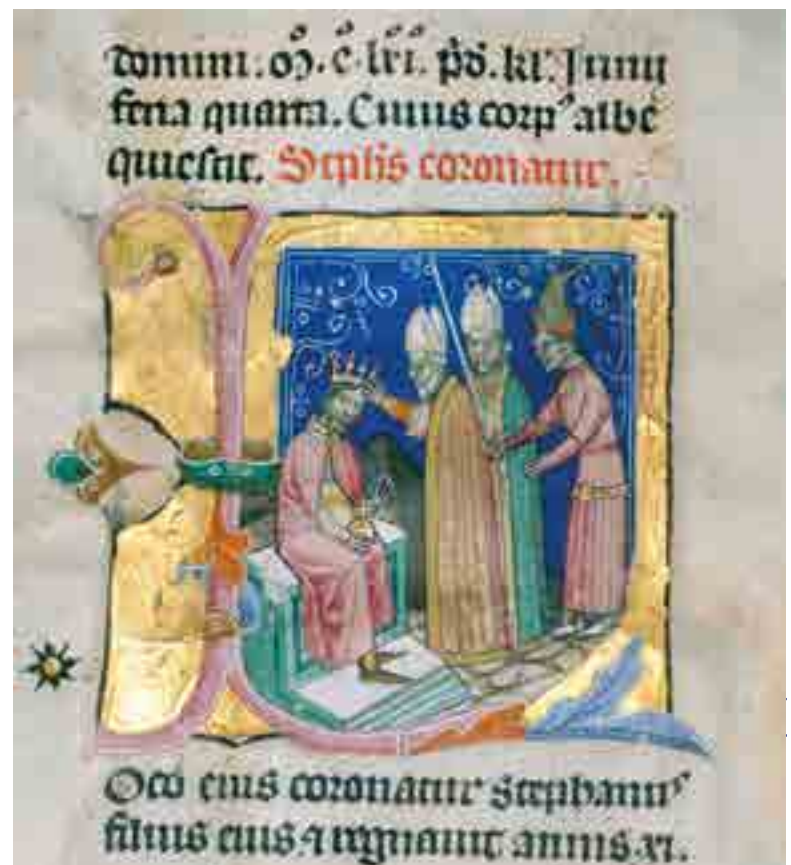 domini. oɔ̄. c̊. lxi̊. pͦd. kl'. Junij
feria quarta. Cuius corpꝰ albe
quiescit. Stephs coronatur.
L
Oco eius coronatur stephanus
filius eius. ⁊ regnauit annis. xi.